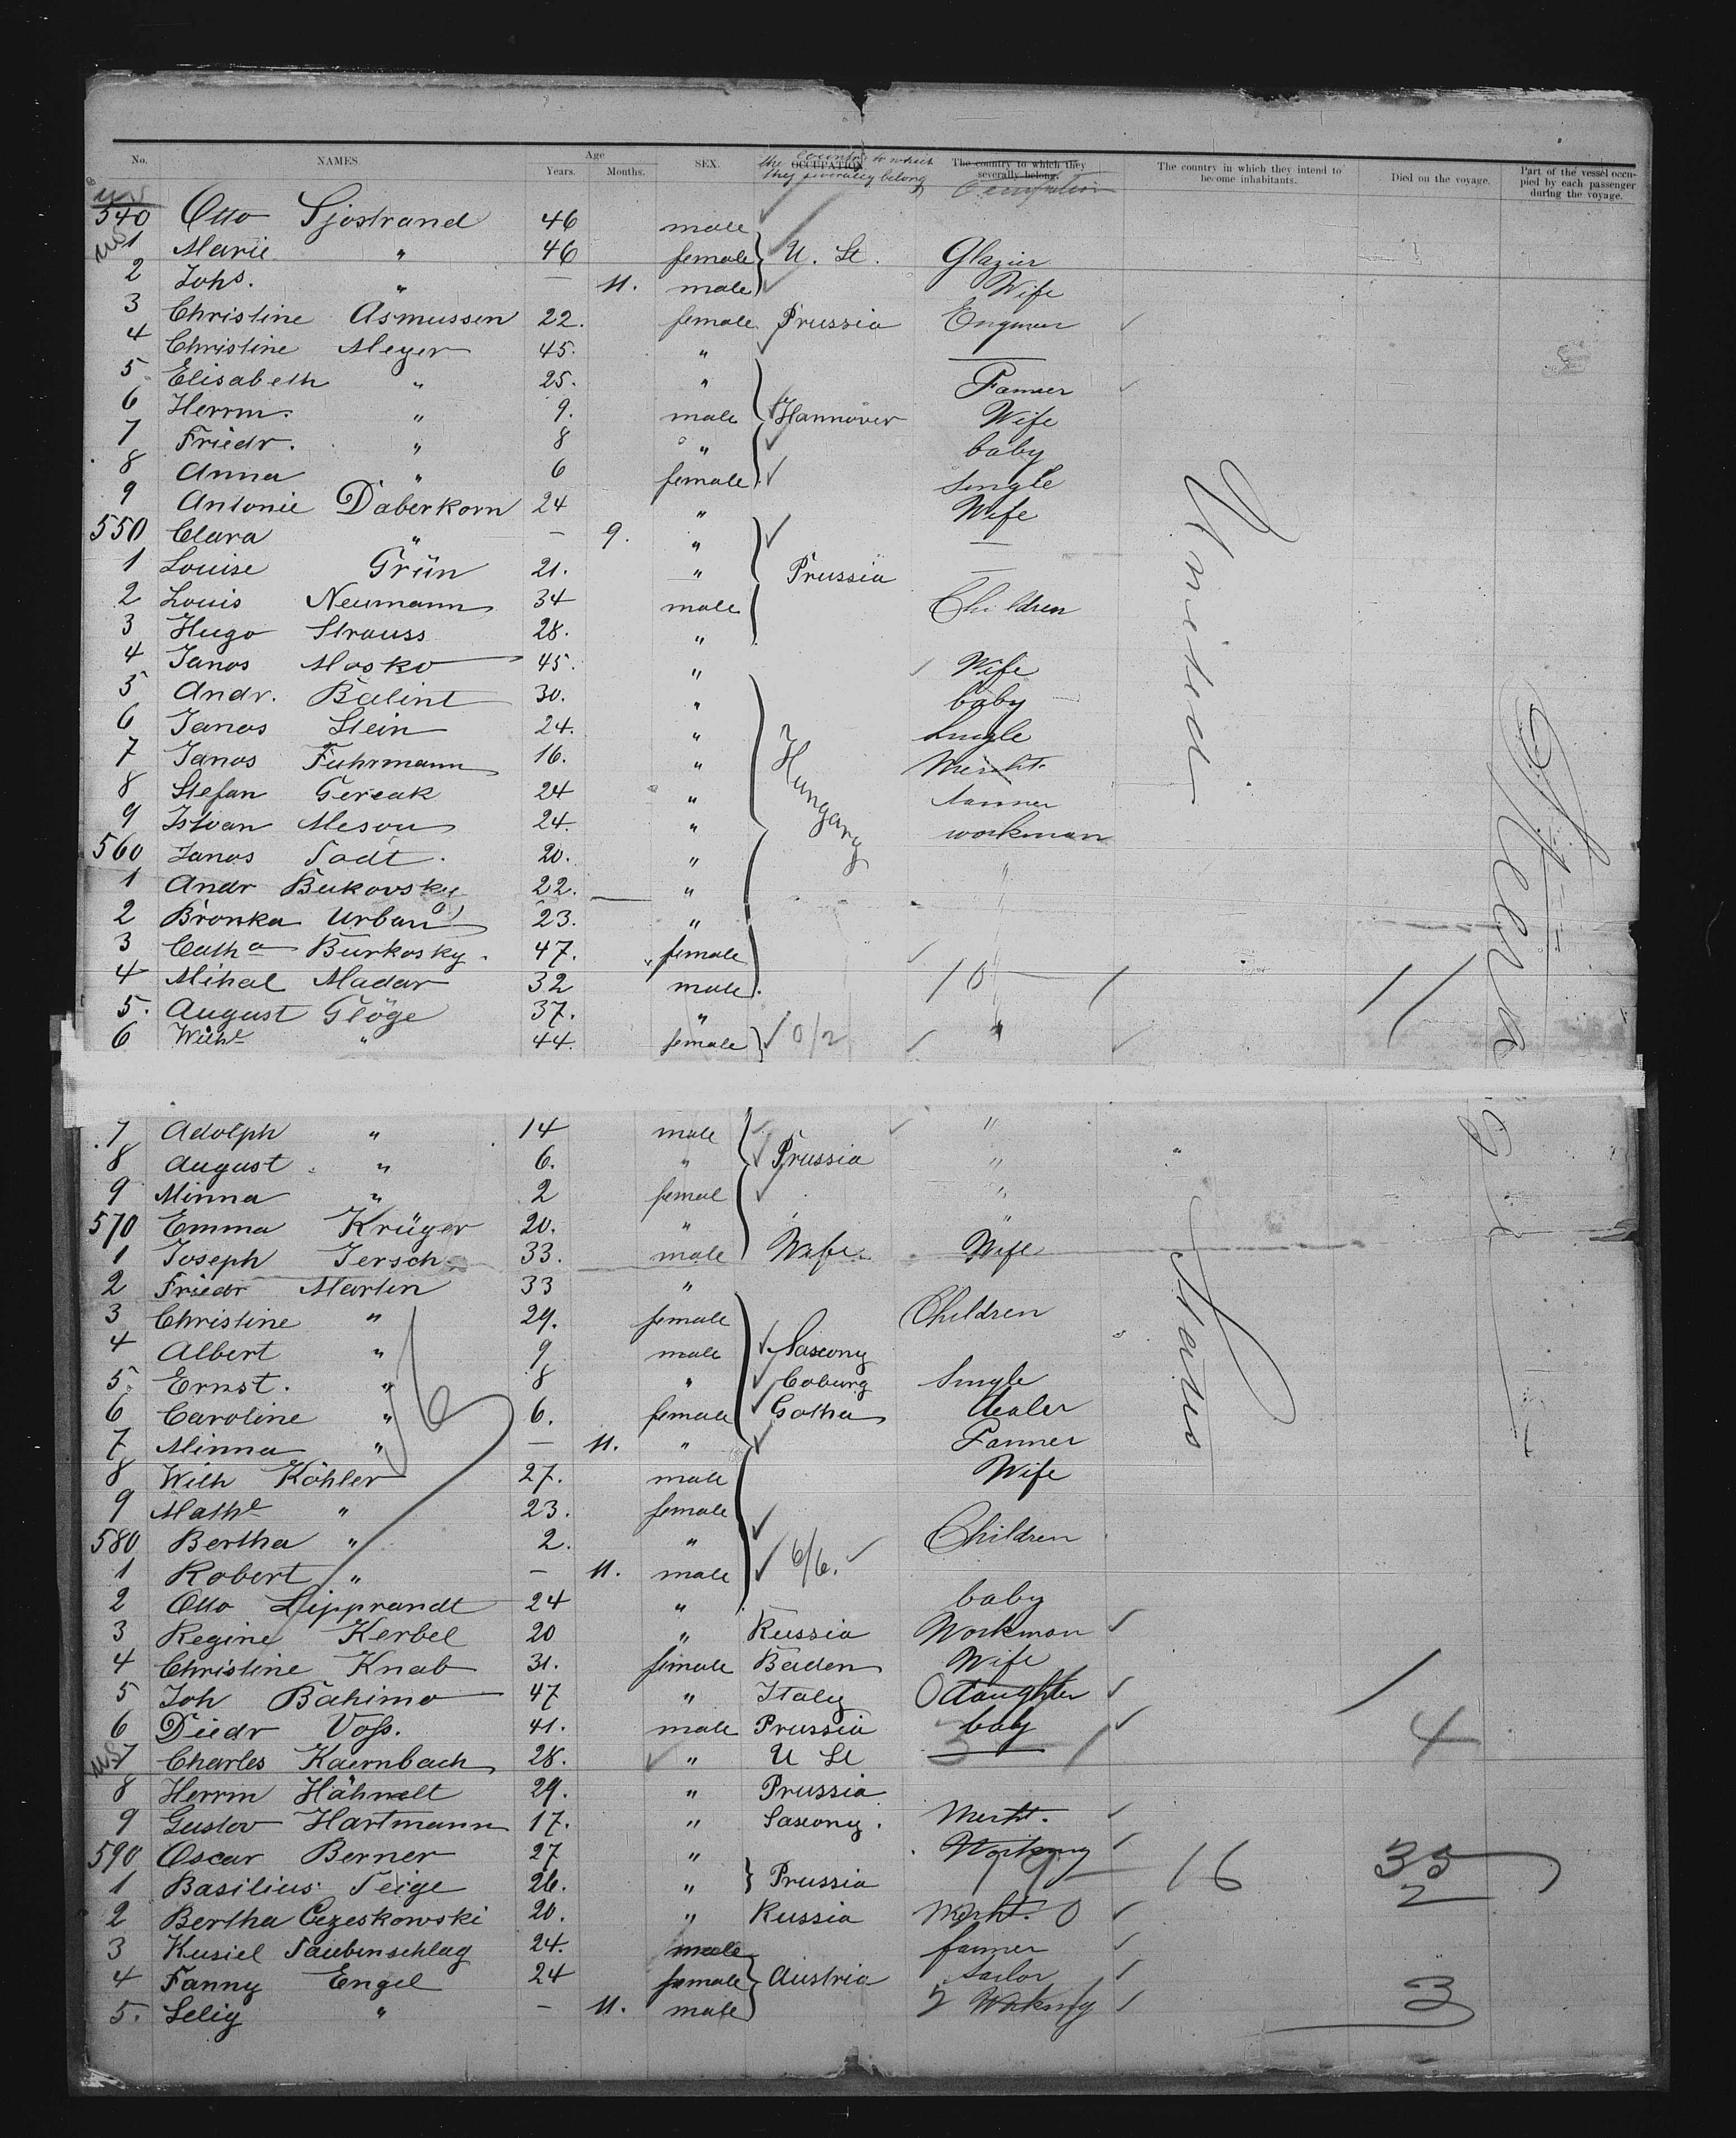 No. NAMES. Age Years. Months. SEX. OCCUPATION the country to which they severally belong The country to which they severally belong. Occupation The country in which they intend to become inhabitants. Died on the voyage. Part of the vessel occupied by each passenger during the voyage.
540 Otto Sjöstrand 46 male
1 Marie " 46 female U. St. Glazier
2 Johs. " — 11. male Wife
3 Christine Asmussen 22. female Prussia
4 Christine Meyer 45. "
5. Elisabeth " 25. " Farmer
6 Herrm. " 9. male Hannover Wife
7 Friedr. " 8 " baby
8 Anna " 6 female Single
9 Antonie Daberkorn 24 " Wife
550 Clara " — 9. " —
1 Louise Grün 21. " Prussia —
2 Louis Neumann 34 male Children
3 Hugo Strauss 28. "
4 Janos Mosko 45. " Wife
5 Andr. Balint 30. " baby
6 Janos Stein 24. " Single
7 Janos Fuhrmann 16. " Hungary Mercht.
8 Stefan Gereak 24 "
9 Istvan 24. " workman
560 Janos Todt. 20. " "
1 Andr Bukovsky 22. "
2 Bronka Urban 23. "
3 Catha Burkosky. 47. female
4 Mihal Madar 32 male. 10 1 11
5. August Glöge 37. "
6 Wilhe " 44. female 0/2 "
United
Steerage
7 Adolph " 14 male "
8 August " 6. " Prussia "
9 Minna " 2 femal "
570 Emma Krüger 20. " "
1 Joseph Jersch 33. male Wife Wife
2 Friedr Martin 33 "
3 Christine " 29. female Children
4 Albert " 9 male Saxony
5. Ernst. " 8 " Coburg Single
6 Caroline " 6. female Gotha dealer
7 Minna " — 11. " Farmer
8 Wilh Köhler 27. male Wife
9 Mathe " 23. female
580 Bertha " 2. " Children
1 Robert " — 11. male 6/6.
2 Otto Lipprandt 24 " baby
3 Regine Kerbel 20 " Russia Workman
4 Christine Knab 31. female Baden Wife
5 Joh Bahimo 47 " Italy 0 daughter
6 Diedr Voss. 41. male Prussia baby 4
7 Charles Kaernbach 28. " U St 3 — 1
8 Herrm Hähnelt 29. " Prussia
9 Gustov Hartmann 17. " Saxony. Mercht.
590 Oscar Berner 27 " 16 35
1 Basilius Teige 26. " Prussia 2
2 Bertha Czeskowski 20. " Russia Mercht. 0
3 Kusiel Taubenschlag 24. male farmer
4 Fanny Engel 24 female Austria tailor 3
5. Selig " — 11. male
States